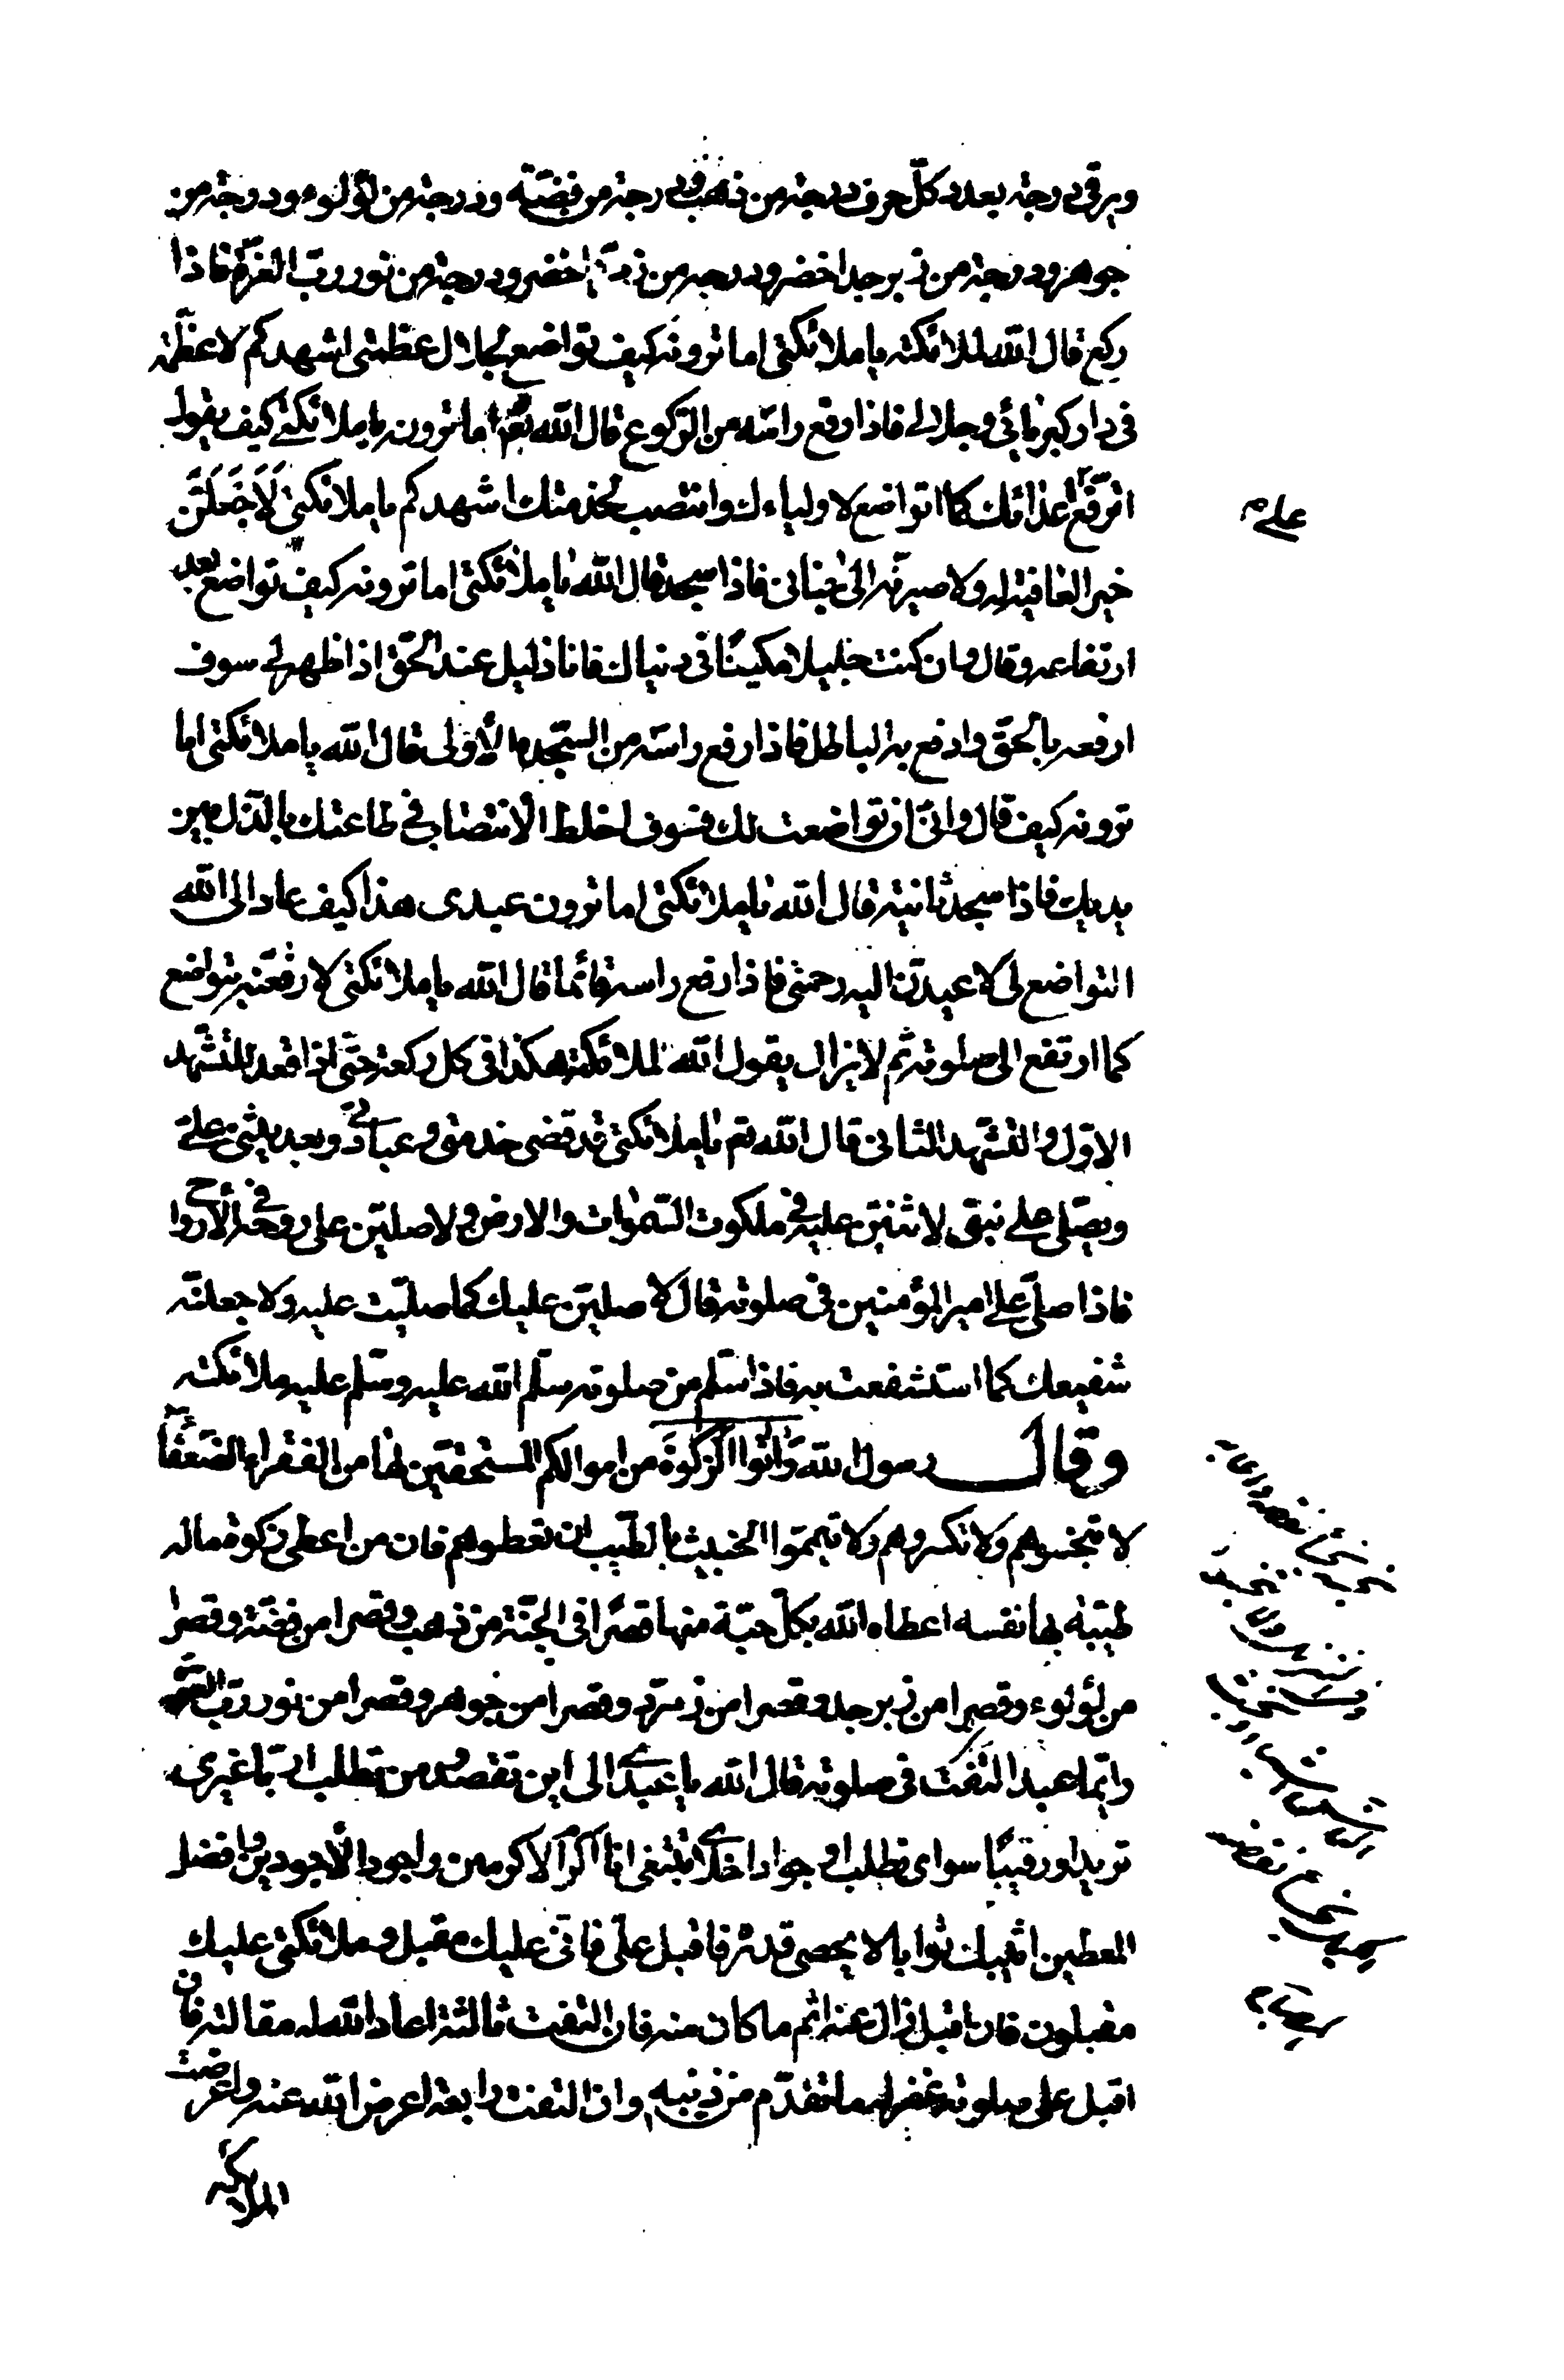 ويرقى درجة بعدد كل حرف درجة من ذهب ودرجة من فضة ودرجة من لؤلؤ ودرجة من
جوهر ودرجة من زبرجد اخضر ودرجه من زمرد اخضر ودرجة من نور رب العزة فاذا
ركع قال الله لملائكته يا ملائكتى اما ترونه كيف تواضع لجلال عظمتى اشهدكم لاعظمنه
فى دار كبريائى وجلالى فاذا رفع راسه من الركوع قال الله تعم اما ترون يا ملائكتى كيف يقول
اترفع اعدائك كما اتواضع لاوليائك وانتصب لخدمتك اشهدكم يا ملائكتى لاجعلن
خير العاقبة له ولاصيرنه الى جنانى فاذا سجد قال الله يا ملائكتى اما ترونه كيف تواضع بعد
ارتفاعه وقال وان كنت جليلا مكينا فى دنياك فانا ذليل عند الحق اذا ظهر لى سوف
ارفعه بالحق وادفع به الباطل فاذا رفع راسه من السجدة الاولى قال الله يا ملائكتى اما
ترونه كيف قال وانى ان تواضعت لك فسوف اخلط الانتصاب فى طاعتك بالذل بين
يديك فاذا سجد ثانية قال الله يا ملائكتى اما ترون عبدى هذا كيف عاد الى الله
التواضع لى لاعيدن اليه رحمتى فاذا رفع راسه قائما قال الله يا ملائكتى لارفعنه بتواضع
كما ارتفع الى صلوته ثم لايزال يقول الله لملائكته هكذا فى كل ركعة حتى اذا قعد للتشهد
الاول والتشهد الثانى قال الله تع يا ملائكتى قد قضى خدمتى وعبادتى وبعد يثنى على
ويصلى على نبيى لاثنين عليه فى ملكوت السموات والارض ولاصلين على روحه فى الارواح
فاذا صلى على امير المؤمنين فى صلوته قال لاصلين عليك كما صليت عليه ولاجعلنه
شفيعك كما استشفعت به فاذا سلم من صلوته سلم الله عليه وسلم عليه ملائكته
وقال رسول الله وَاتُوا الزَّكوةَ من اموالكم المستحقين لها من الفقراء والضعفا
لا تبخسوهم ولا تكسروهم ولا تيمموا الخبيث بالطيب ان تعطوهم فان من اعطى زكوة ماله
طيبة بها نفسه اعطاه الله بكل حبة منها قصرا فى الجنة من ذهب وقصرا من فضة وقصرا
من لؤلؤ وقصرا من زبرجد وقصرا من زمرد وقصرا من جوهر وقصرا من نور رب
وايما عبد التفت فى صلوته قال الله يا عبدى الى اين تقصد ومن تطلب اربا غيرى
تريد او رقيبا سواى تطلب او جوادا خلاى تبتغى انا اكرم الاكرمين واجود الاجودين وافضل
المعطين اثيبك ثوابا لا يحصى قدره فاقبل على فانى عليك مقبل وملائكتى عليك
مقبلون فان اقبل زال عنه اثم ما كان منه فان التفت ثالثة اعاد الله له مقالته فان
اقبل على صلوته غفر له ما تقدم من ذنبه وان التفت رابعة اعرض الله عنه واعرضت
الملائكة
على م